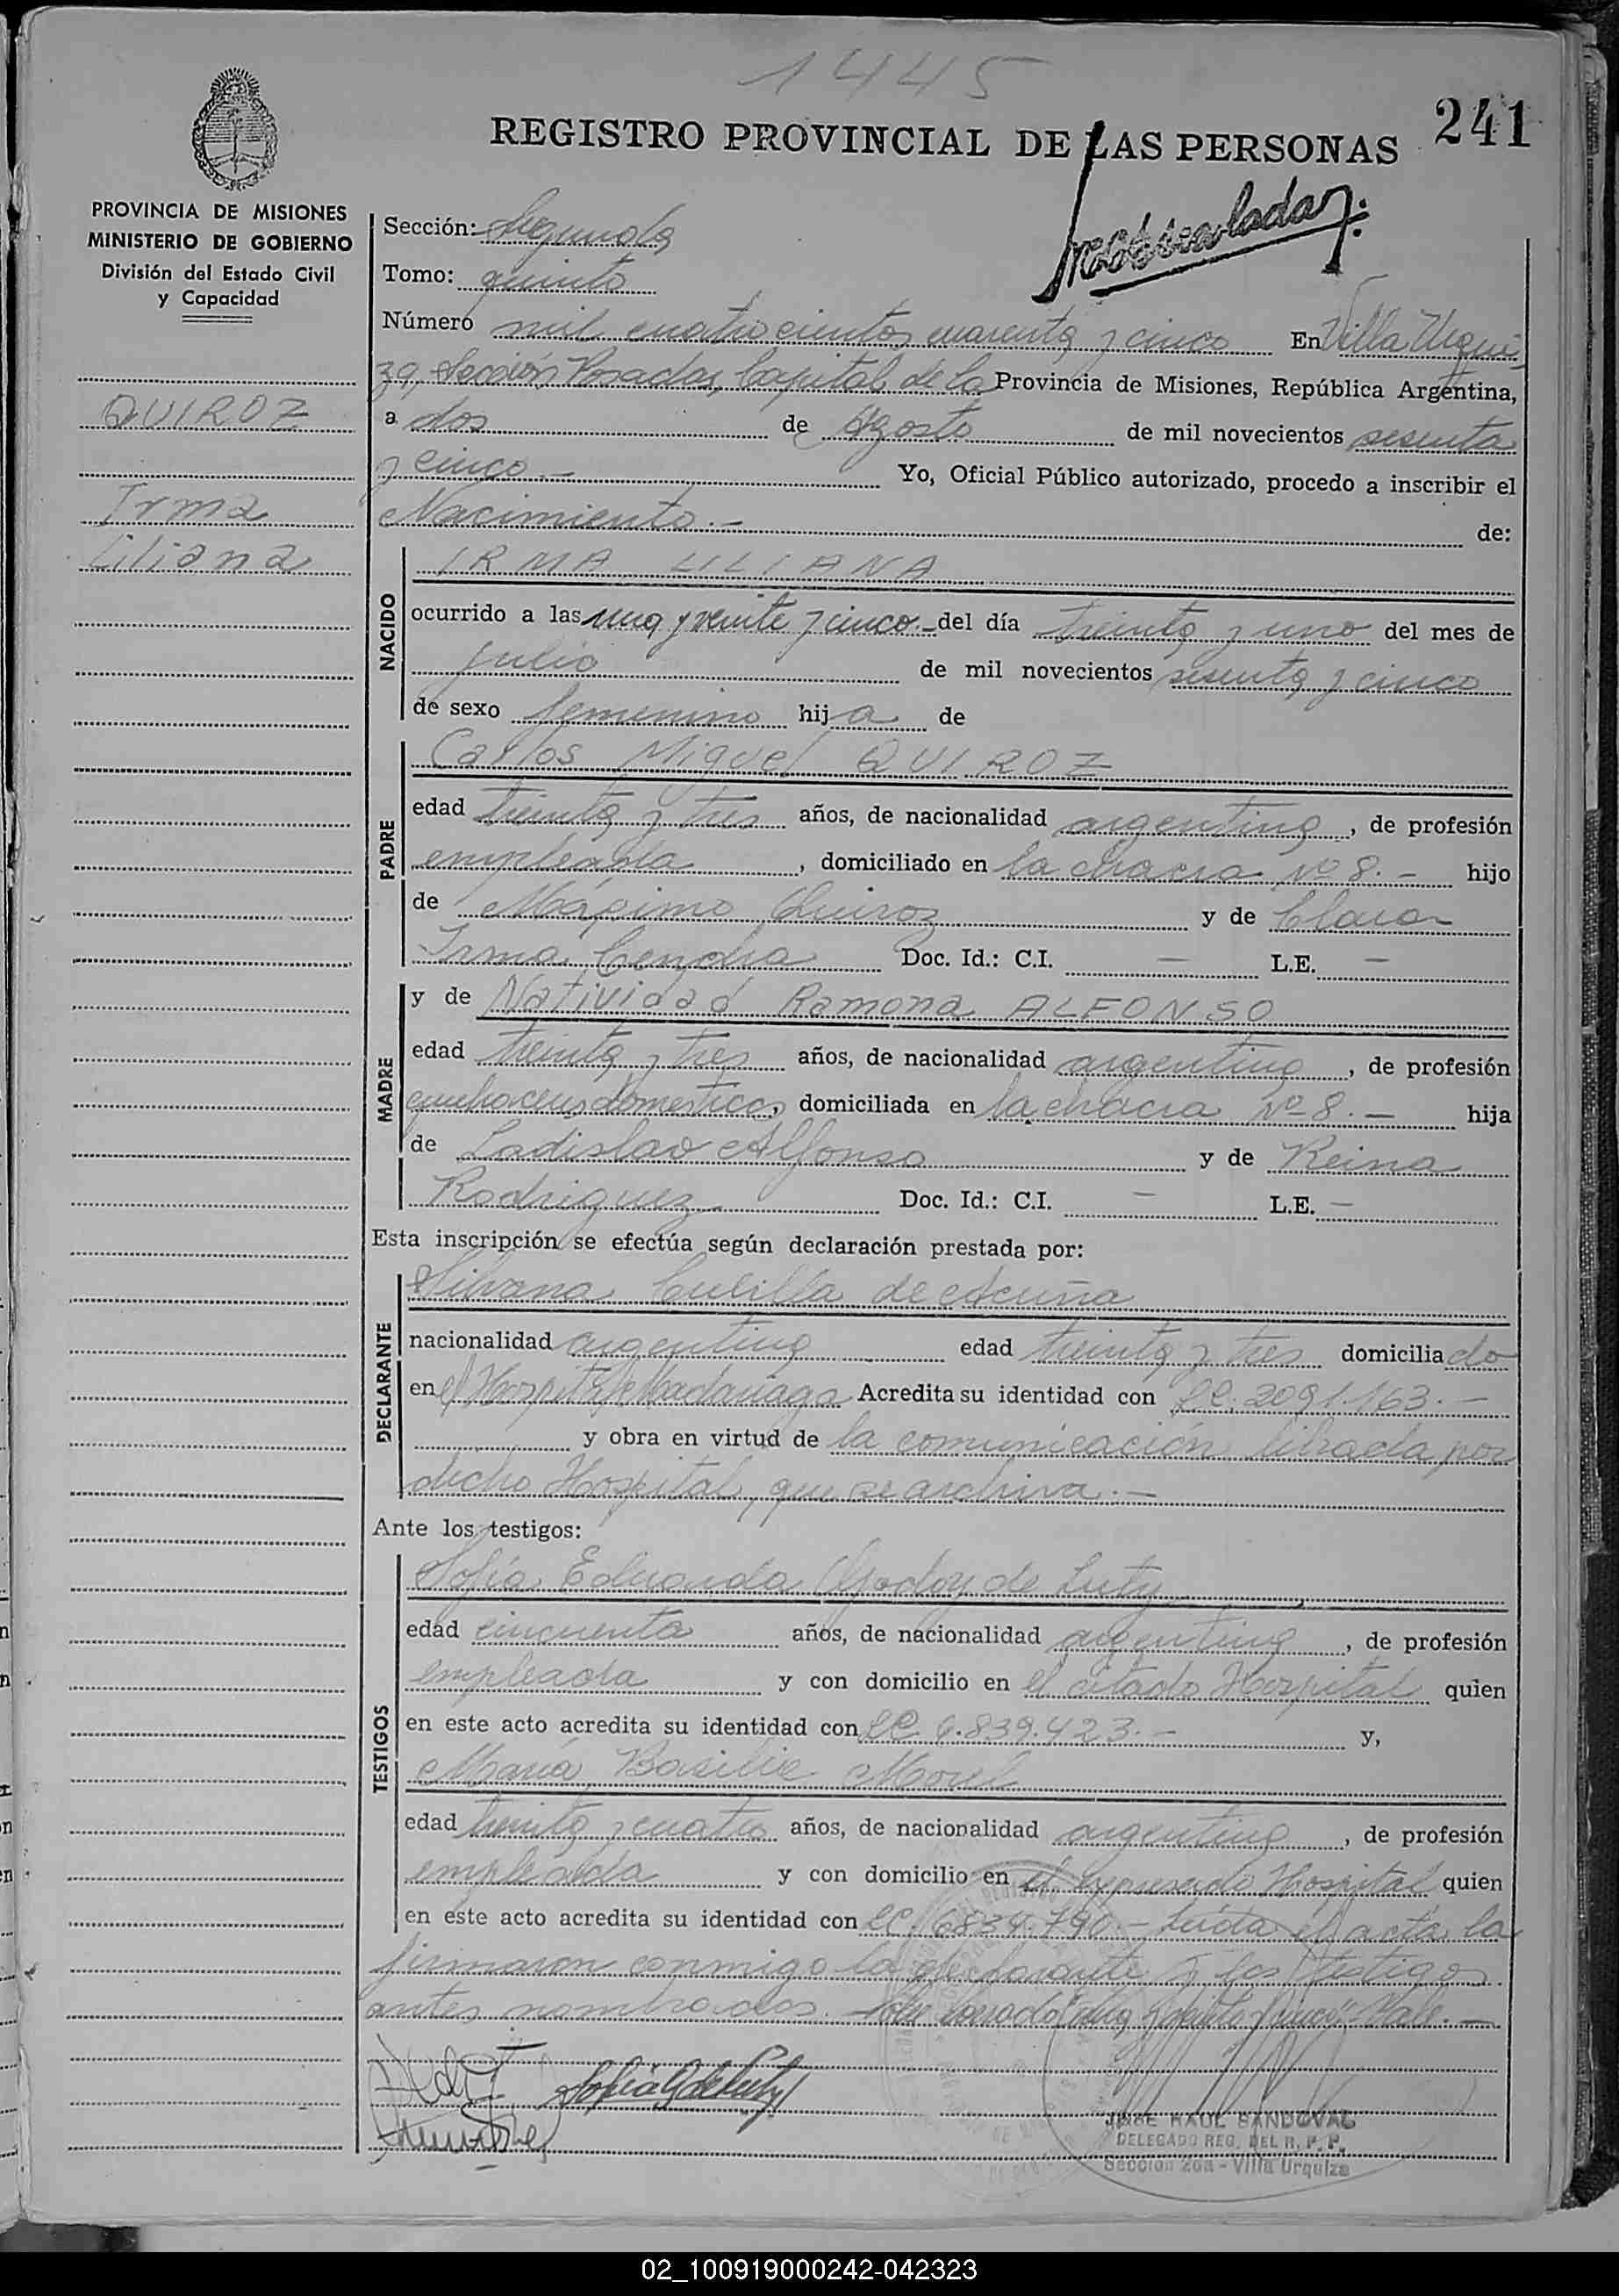 1445
241
REGISTRO PROVINCIAL DE LAS PERSONAS
PROVINCIA DE MISIONES
MINISTERIO DE GOBIERNO
División del Estado Civil
y Capacidad
QUIROZ
Irma
Liliana
Sección: Segunda
Tomo: quinto
Número mil cuatrocientos cuarenta y cinco En Villa Urqui-
za, Sección Posadas, Capital de la Provincia de Misiones, República Argentina,
a dos de Agosto de mil novecientos sesenta
y cinco.- Yo, Oficial Público autorizado, procedo a inscribir el
Nacimiento.- de:
NACIDO
IRMA LILIANA
ocurrido a las una y veinte y cinco.- del día treinta y uno del mes de
julio de mil novecientos sesenta y cinco
de sexo femenino hija de
PADRE
Carlos Miguel QUIROZ
edad treinta y tres años, de nacionalidad argentina, de profesión
empleada, domiciliado en la chacra Nº 8.- hijo
de Máximo Quiroz y de Clara
Irma Doc. Id.: C.I. - L.E. -
MADRE
y de Natividad Ramona ALFONSO
edad treinta y tres años, de nacionalidad argentina, de profesión
quehaceres domesticos, domiciliada en la chacra Nº 8.- hija
de Ladislao Alfonso y de Reina
Rodriguez Doc. Id.: C.I. - L.E. -
Esta inscripción se efectúa según declaración prestada por:
DECLARANTE
Silvana de Acuña
nacionalidad argentina edad treinta y tres domiciliado
en el Hospital Madariaga Acredita su identidad con LC. 2091.163.-
y obra en virtud de la comunicación librada por
dicho Hospital, que se archiva.-
Ante los testigos:
TESTIGOS
Sofía Eduarda Godoy de Luty
edad cincuenta años, de nacionalidad argentina, de profesión
empleada y con domicilio en el citado Hospital quien
en este acto acredita su identidad con LC. 6.839.423.- y,
María Basilia Morel
edad treinta y cuatro años, de nacionalidad argentina, de profesión
empleada y con domicilio en el expresado Hospital quien
en este acto acredita su identidad con LC. 6834.790.- Leída el acta la
firmaron conmigo la declarante y los testigos
antes nombrados. Sobre borrado "una y veinte y cinco" Vale.-
Sofia G de Luty
JOSE RAUL SANDOVAL
DELEGADO REG. DEL R. P. P.
Sección 2da - Villa Urquiza
02_100919000242-042323